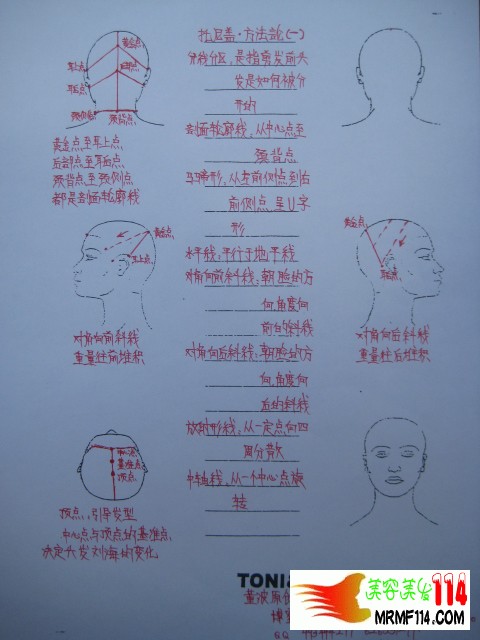 杜卫盖·方法论(一)
分线分区，是指剪发前头
发是如何被分
开的
剖面轮廓线，从中心点至
颈背点
马蹄形，从左前侧点到右
前侧点，呈U字
形
水平线，平行于地平线
对角向前斜线，朝脸的方
向，角度向
前的斜线
对角向后斜线，朝脸的方
向，角度向
后的斜线
放射形线，从一定点向四
周分散
中轴线，从一个中心点旋
转
黄金点
耳上点
后部点
耳后点
颈侧点
颈背点
黄金点至耳上点
后部点至耳后点
颈背点至颈侧点
都是剖面轮廓线
黄金点
耳上点
对角向前斜线
重量往前堆积
黄金点
耳后点
对角向后斜线
重量往后堆积
中心点
基准点
顶点
顶点，引导发型
中心点与顶点的基准点
决定头发刘海的变化
TONI&
董波原创
美容美发114
MRMF114.COM